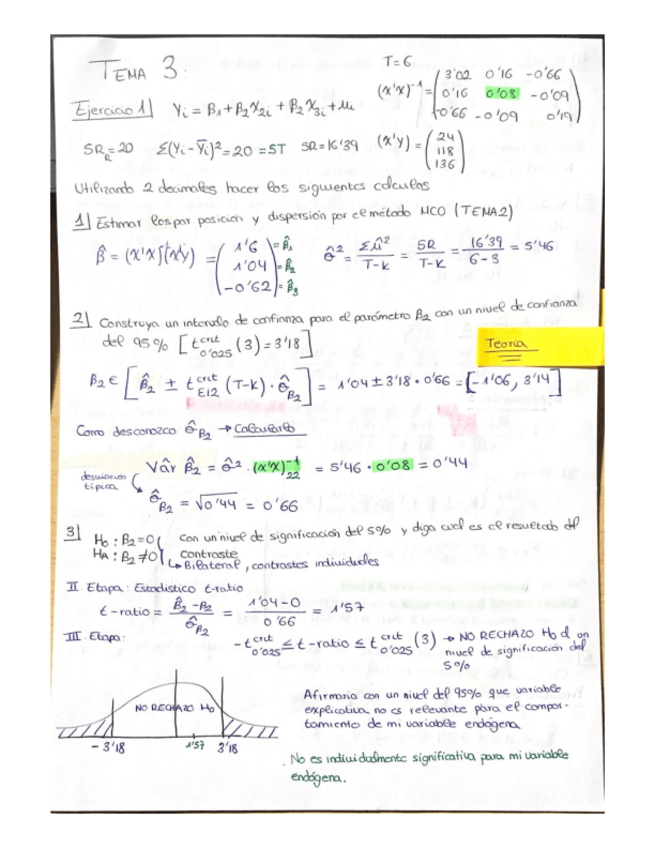 TEMA 3:
T=6
(x'x)⁻¹ = ( 3'02 0'16 -0'66
0'16 0'08 -0'09
-0'66 -0'09 0'19 )
Ejercicio 1 Yi = β1+β2X2i + β2X3i + ui
SR_R = 20 Σ(Yi - Ȳi)² = 20 = ST SR = 16'39 (x'y) = ( 24
118
136 )
Utilizando 2 decimales hacer los siguientes calculos
1 Estimar los par posición y dispersión por el método MCO (TEMA 2)
β̂ = (x'x)⁻¹(x'y) = ( 1'6 = β̂1
1'04 = β̂2
-0'62 = β̂3 )
σ̂² = Σû² / T-K = SR / T-K = 16'39 / 6-3 = 5'46
2 Construya un intervalo de confianza para el parámetro β2 con un nivel de confianza
del 95% [ t crit 0'025 (3) = 3'18 ]
Teoria
β2 ∈ [ β̂2 ± t crit ε/2 (T-K) · σ̂β̂2 ] = 1'04 ± 3'18 · 0'66 = [-1'06, 3'14]
Como desconozco σ̂β2 → Calcularlo
Vâr β̂2 = σ̂² · (x'x)⁻¹22 = 5'46 · 0'08 = 0'44
desviacion
típica
σ̂β2 = √0'44 = 0'66
3 H0 : β2 = 0 con un nivel de significación del 5% y diga cual es el resultado del
HA : β2 ≠ 0 contraste
↳ Bilateral, contrastes individuales
II Etapa: Estadistico t-ratio
t-ratio = β̂2 - β2 / σ̂β2 = 1'04 - 0 / 0'66 = 1'57
III Etapa: -t crit 0'025 ≤ t-ratio ≤ t crit 0'025 (3) → NO RECHAZO H0 d un
nivel de significación del
5%
NO RECHAZO H0
-3'18 1'57 3'18
Afirmaria con un nivel del 95% que variable
explicativa no es relevante para el compor-
tamiento de mi variable endógena
No es individualmente significativa para mi variable
endógena.